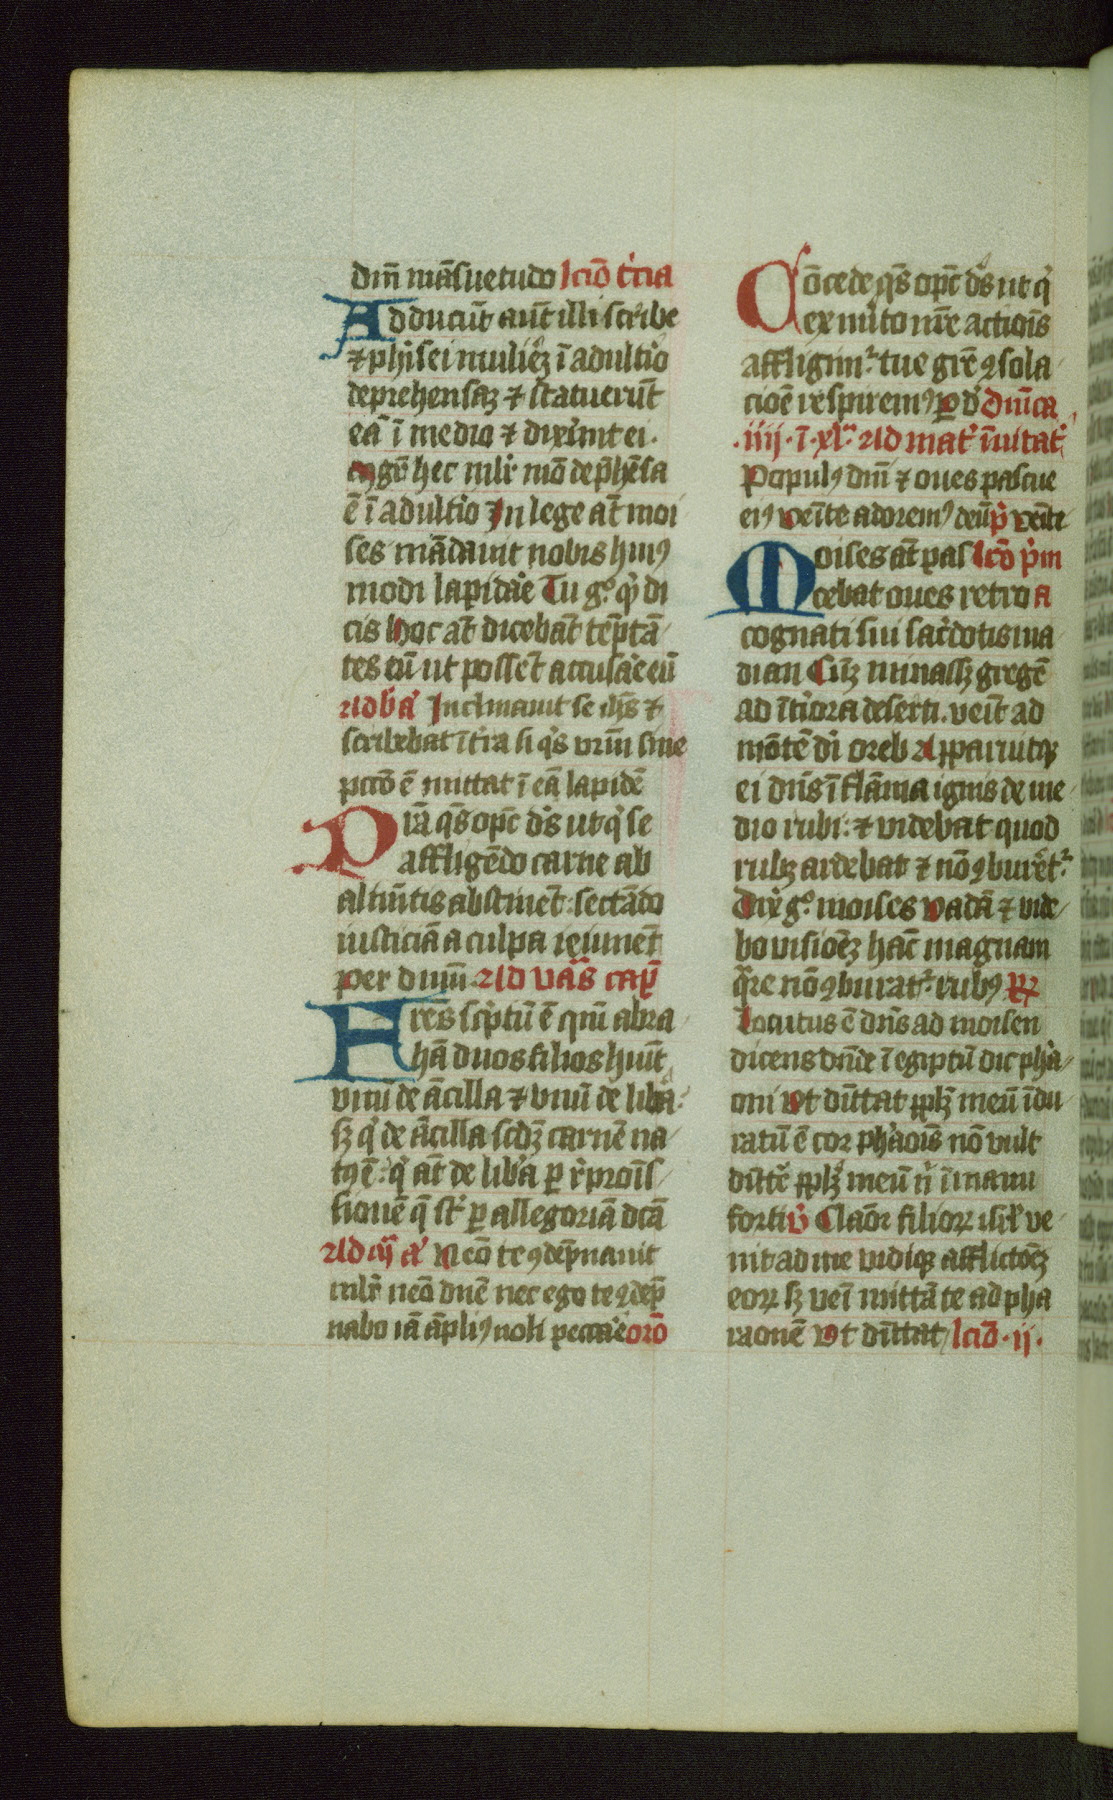 dm̄ māsuetudo lcīo t'cia
Adducūt aut̄ illi scribe
⁊ phisei mulierꝫ ī adult'io
deprehensaꝫ ⁊ statuerūt
eā ī medio ⁊ dixert̄ ei·
mgr̄ hec mlr̄ mō dep̄hēsa
ē ī adult'io In lege at̄ moi
ses mādauit nobis huiꝰ
modi lapidar̄e Tu g° q'd di
cis hoc at̄ dicebāt tēptā
tes eū ut possēt accusar̄e eū
Ad b̄n a' Inclinauit se ih̄s ⁊
scribebat ī tr̄a si q's vr̄m sine
pccō ē mittat ī eā lapidē
Pr̄a q̄s opc̄ ds̄ ut q' se
affligēdo carne ab
alimētis abstinēt: sectādo
iusticiā a culpa ieiunēt
per dnm̄ Ad vās cap̄
Fres sc'ptū ē qm̄ abra
hā duos filios huīt
vnū de ācilla ⁊ vnū de libera·
sꝫ q' de ācilla scdꝫ carnē na
tꝰ ē· q' at̄ de lib'a ꝑ r̄promis
sionē q̄ st̄ ꝑ allegoriā dc̄ā
Ad m̄ a' Neō te ꝯdēpnauit
mlr̄ neō dnē nec ego te ꝯdēp̄
nabo iā āpliꝰ noli peccar̄e orō
Cōcede q̄s opc̄ ds̄ ut q'
ex m'ito nr̄e actiois
affligim᷑ tue gr̄e ꝯsola
cioē respiremꝰ ꝑ d' Dn̄ica
·iiii· ī· xl᷑ Ad mat' īuitat'
Populꝰ dm̄ ⁊ oues pascue
eiꝰ venīte adoremꝰ deū p̄s venīte
Moises at̄ pas lcō p'm
cebat oues retro a
cognati sui sac'dotis ma
dian Cūꝫ minassꝫ gregē
ad īt'iora deserti· veīt ad
mōtē di oreb Apparuitqꝫ
ei dn̄s ī flāma ignis de me
dio rubi: ⁊ videbat quod
rubꝫ ardebat ⁊ nō ꝯburet᷑
Dix' g° moises vadā ⁊ vide
bo visioēꝫ hāc magnam
q̄re nō ꝯburat᷑ rubꝰ R
Locutus ē dn̄s ad moisen
dicens dn̄de ī egiptū dic pha
oni Vt dīttat pplꝫ meū īdu
ratū ē cor phaois nō vult
dītte' pplꝫ meū n' ī manu
forti V Clāor filiorꝝ isrl' ve
nit ad me vidiqꝫ afflictioēꝫ
eorꝝ sꝫ venī mittā te ad pha
raonē Vt dīttat lcīo ·ii·